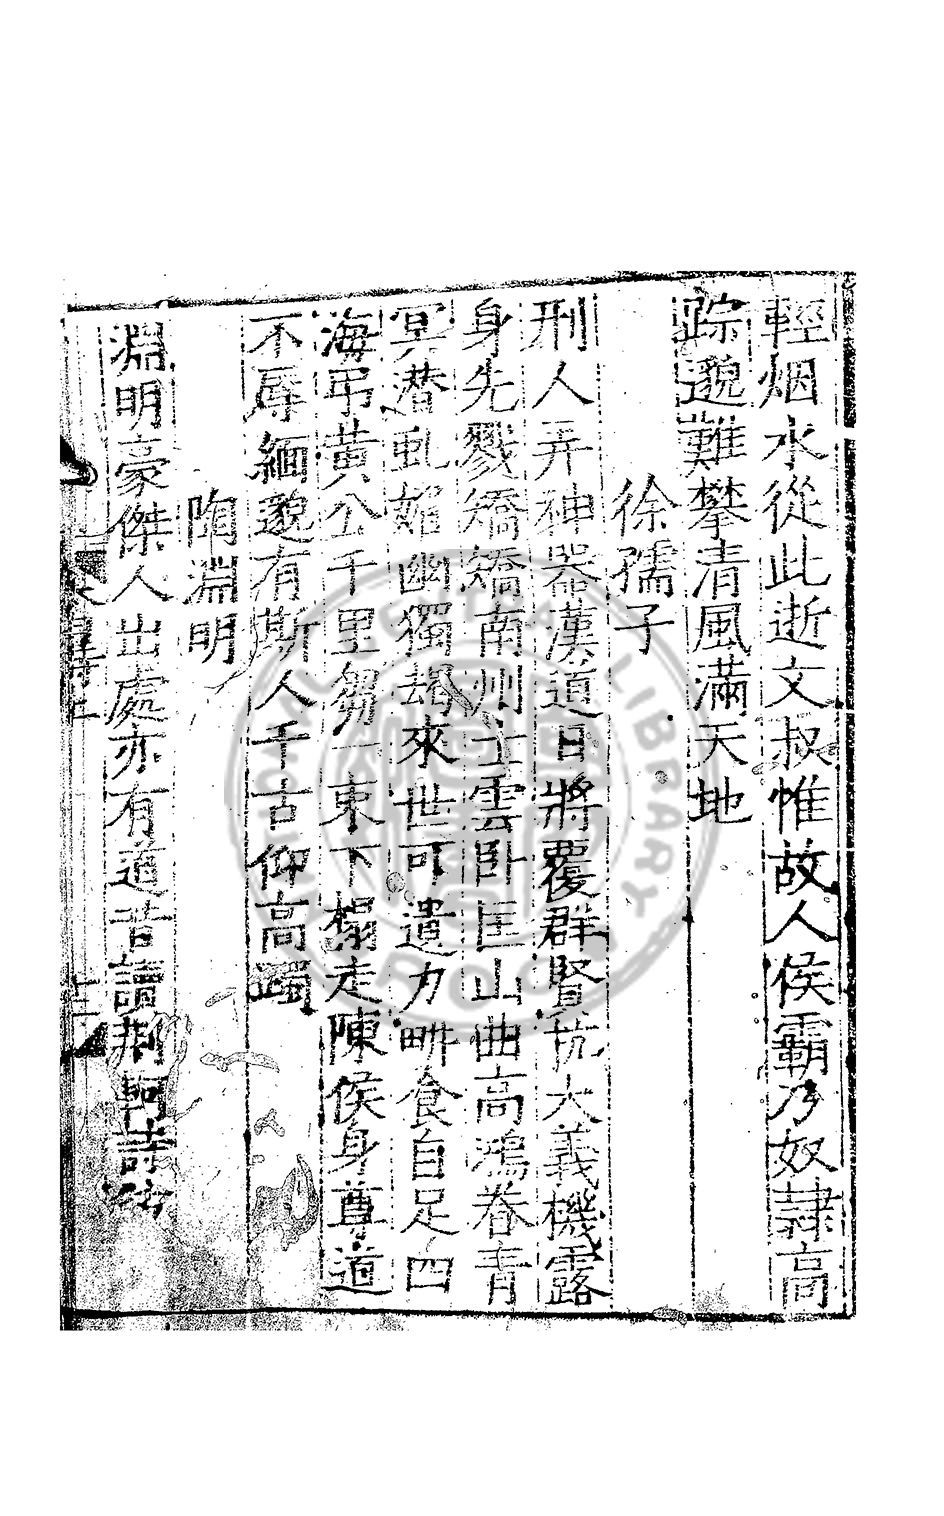 輕烟水從此逝文叔惟故人侯霸乃奴隷高
踪邈難攀清風滿天地
徐孺子
刑人弄神器漢道日將覆群賢抗大義機露
身先戮矯矯南州士雲卧匡山曲高鴻卷青
冥潜虬媚幽獨朅來世可遺力畊食自足四
海弔黄公千里芻一東下榻走陳侯身尊道
不辱緬邈有斯人千古仰高躅
陶淵明
淵明豪傑人出處亦有道昔讀荆軻詩